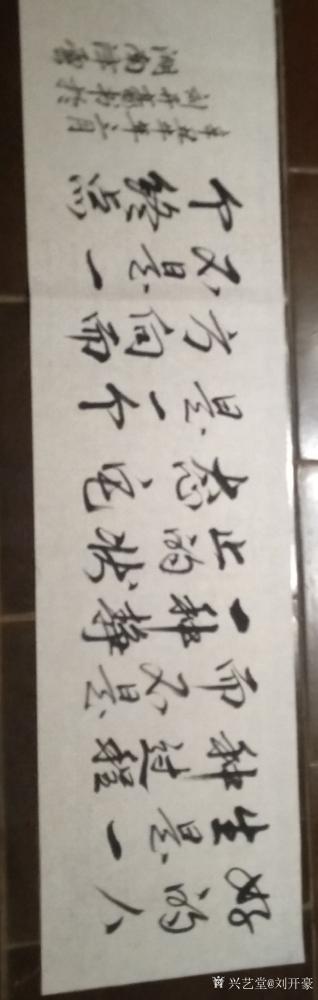 好的人
生是一
种过程
而不是
一种静
止的状
态它
是一个
方向而
不是一
个终点
辛丑年六月
刘开豪书於
湖南津
兴艺堂@刘开豪